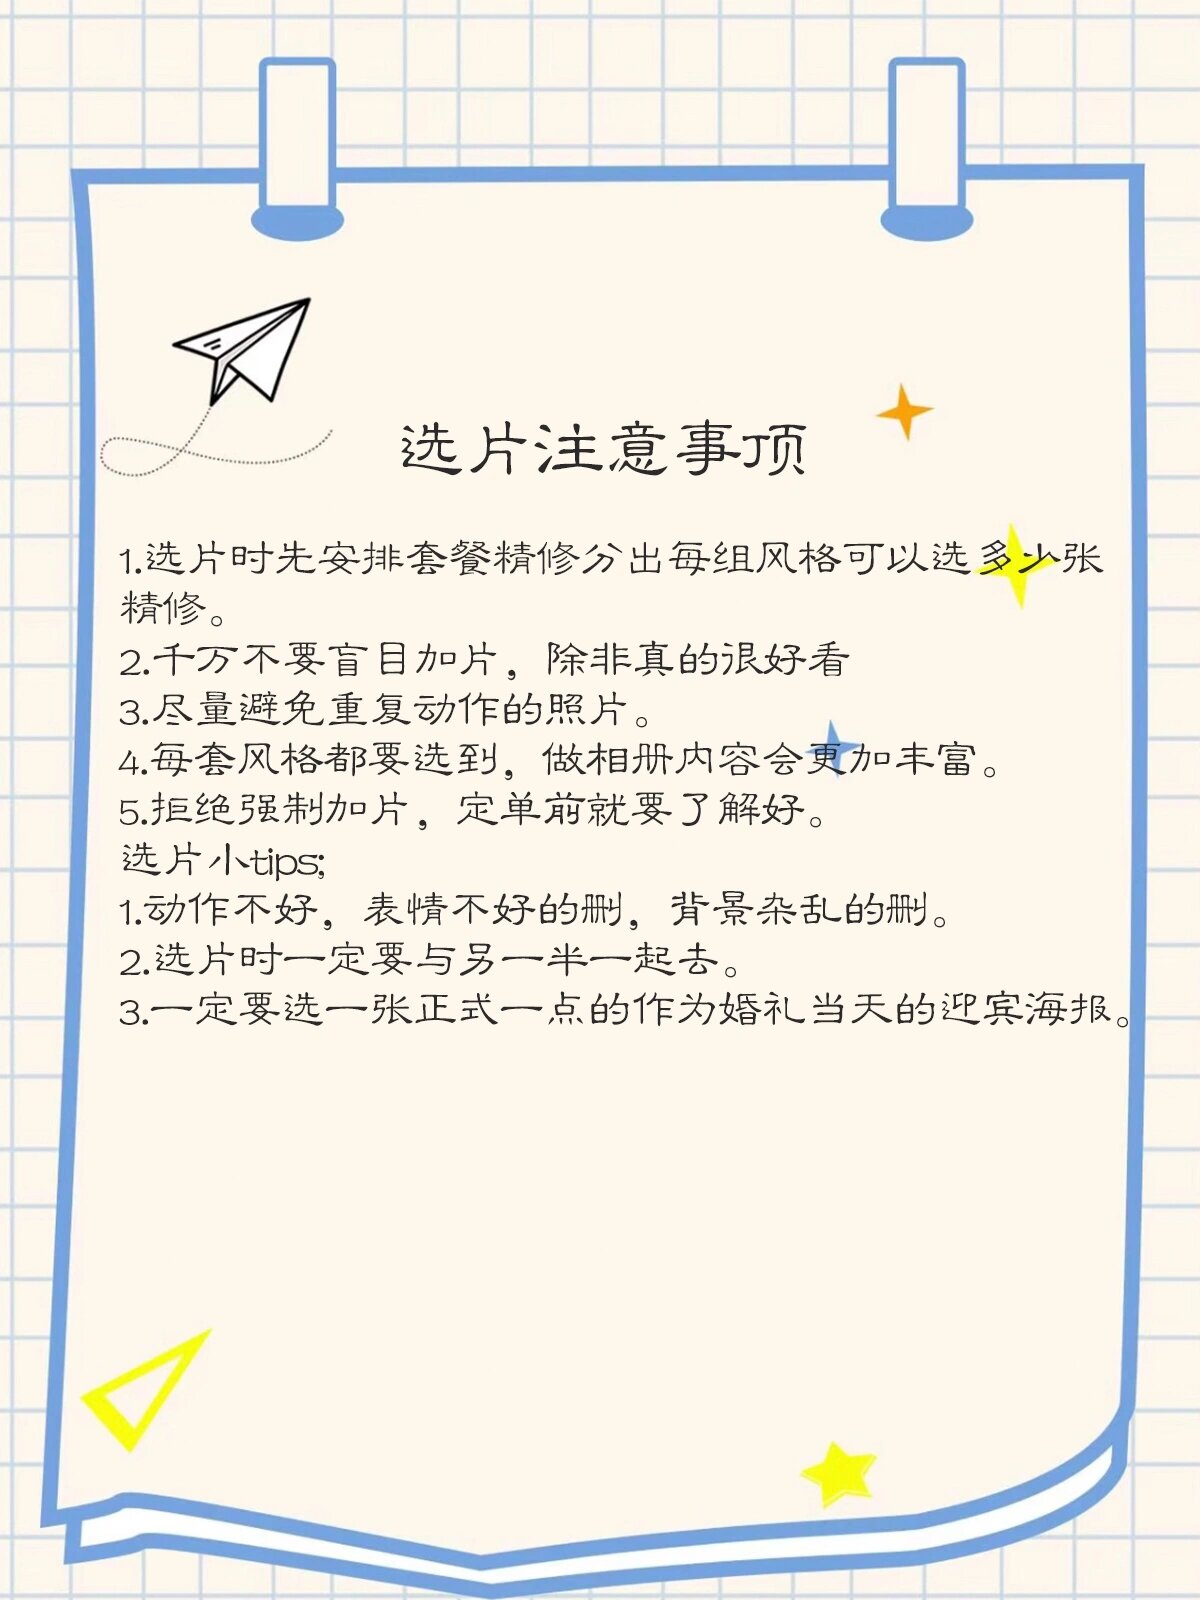 选片注意事项
1.选片时先安排套餐精修分出每组风格可以选多少张
精修。
2.千万不要盲目加片，除非真的很好看
3.尽量避免重复动作的照片。
4.每套风格都要选到，做相册内容会更加丰富。
5.拒绝强制加片，定单前就要了解好。
选片小tips;
1.动作不好，表情不好的删，背景杂乱的删。
2.选片时一定要与另一半一起去。
3.一定要选一张正式一点的作为婚礼当天的迎宾海报。